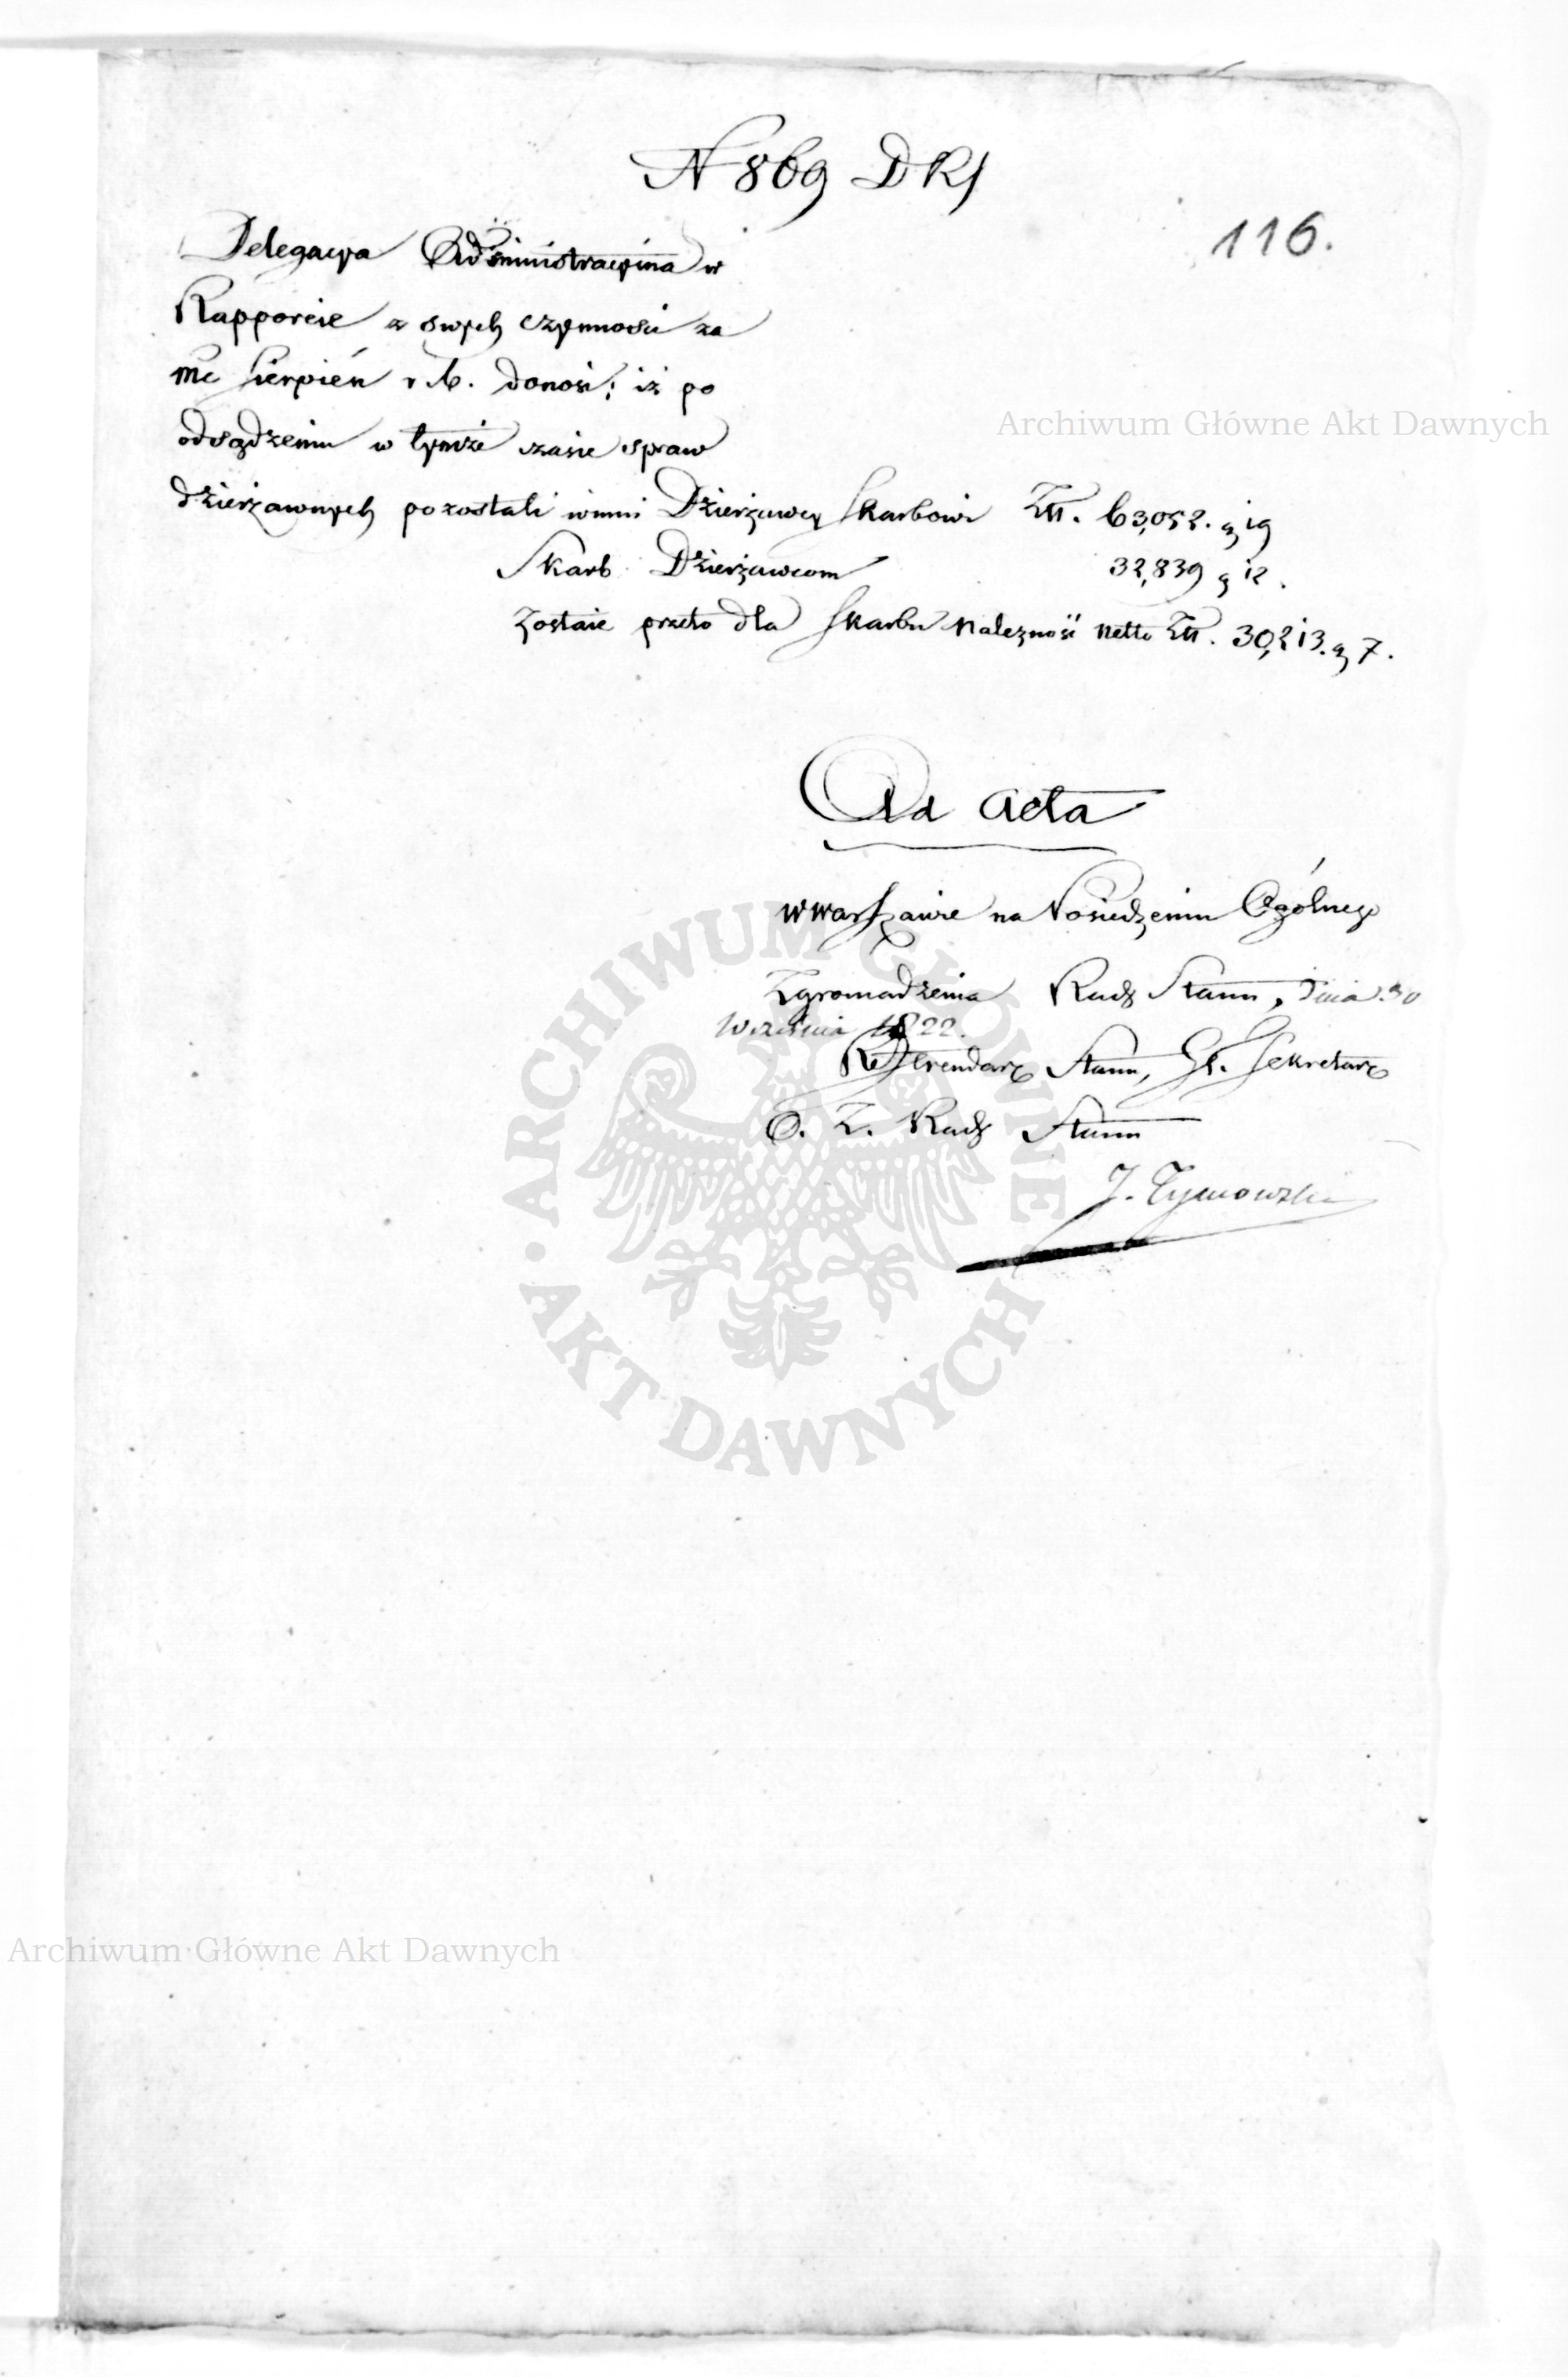 N 869 DRS
116.
Delegacya Administracyina w
Rapporcie z swych czynności za
mc Sierpień r. b. donosi; iż po
odsądzeniu w tymże czasie spraw
dzierżawnych pozostali winni Dzierżawcy Skarbowi Złł. 63,052. g 19
Skarb Dzierżawcom 32,839 g 12.
Zostaie przeto dla Skarbu Należność netto Złł. 30,213. g 7.
Ad Acta
w Warszawie na Posiedzeniu Ogólnego
Zgromadzenia Rady Stanu, dnia 30
Września 1822.
Referendarz Stanu, Gł. Sekretarz
O. Z. Rady Stanu
J. Tymowski
Archiwum Główne Akt Dawnych
ARCHIWUM GŁÓWNE AKT DAWNYCH
Archiwum Główne Akt Dawnych